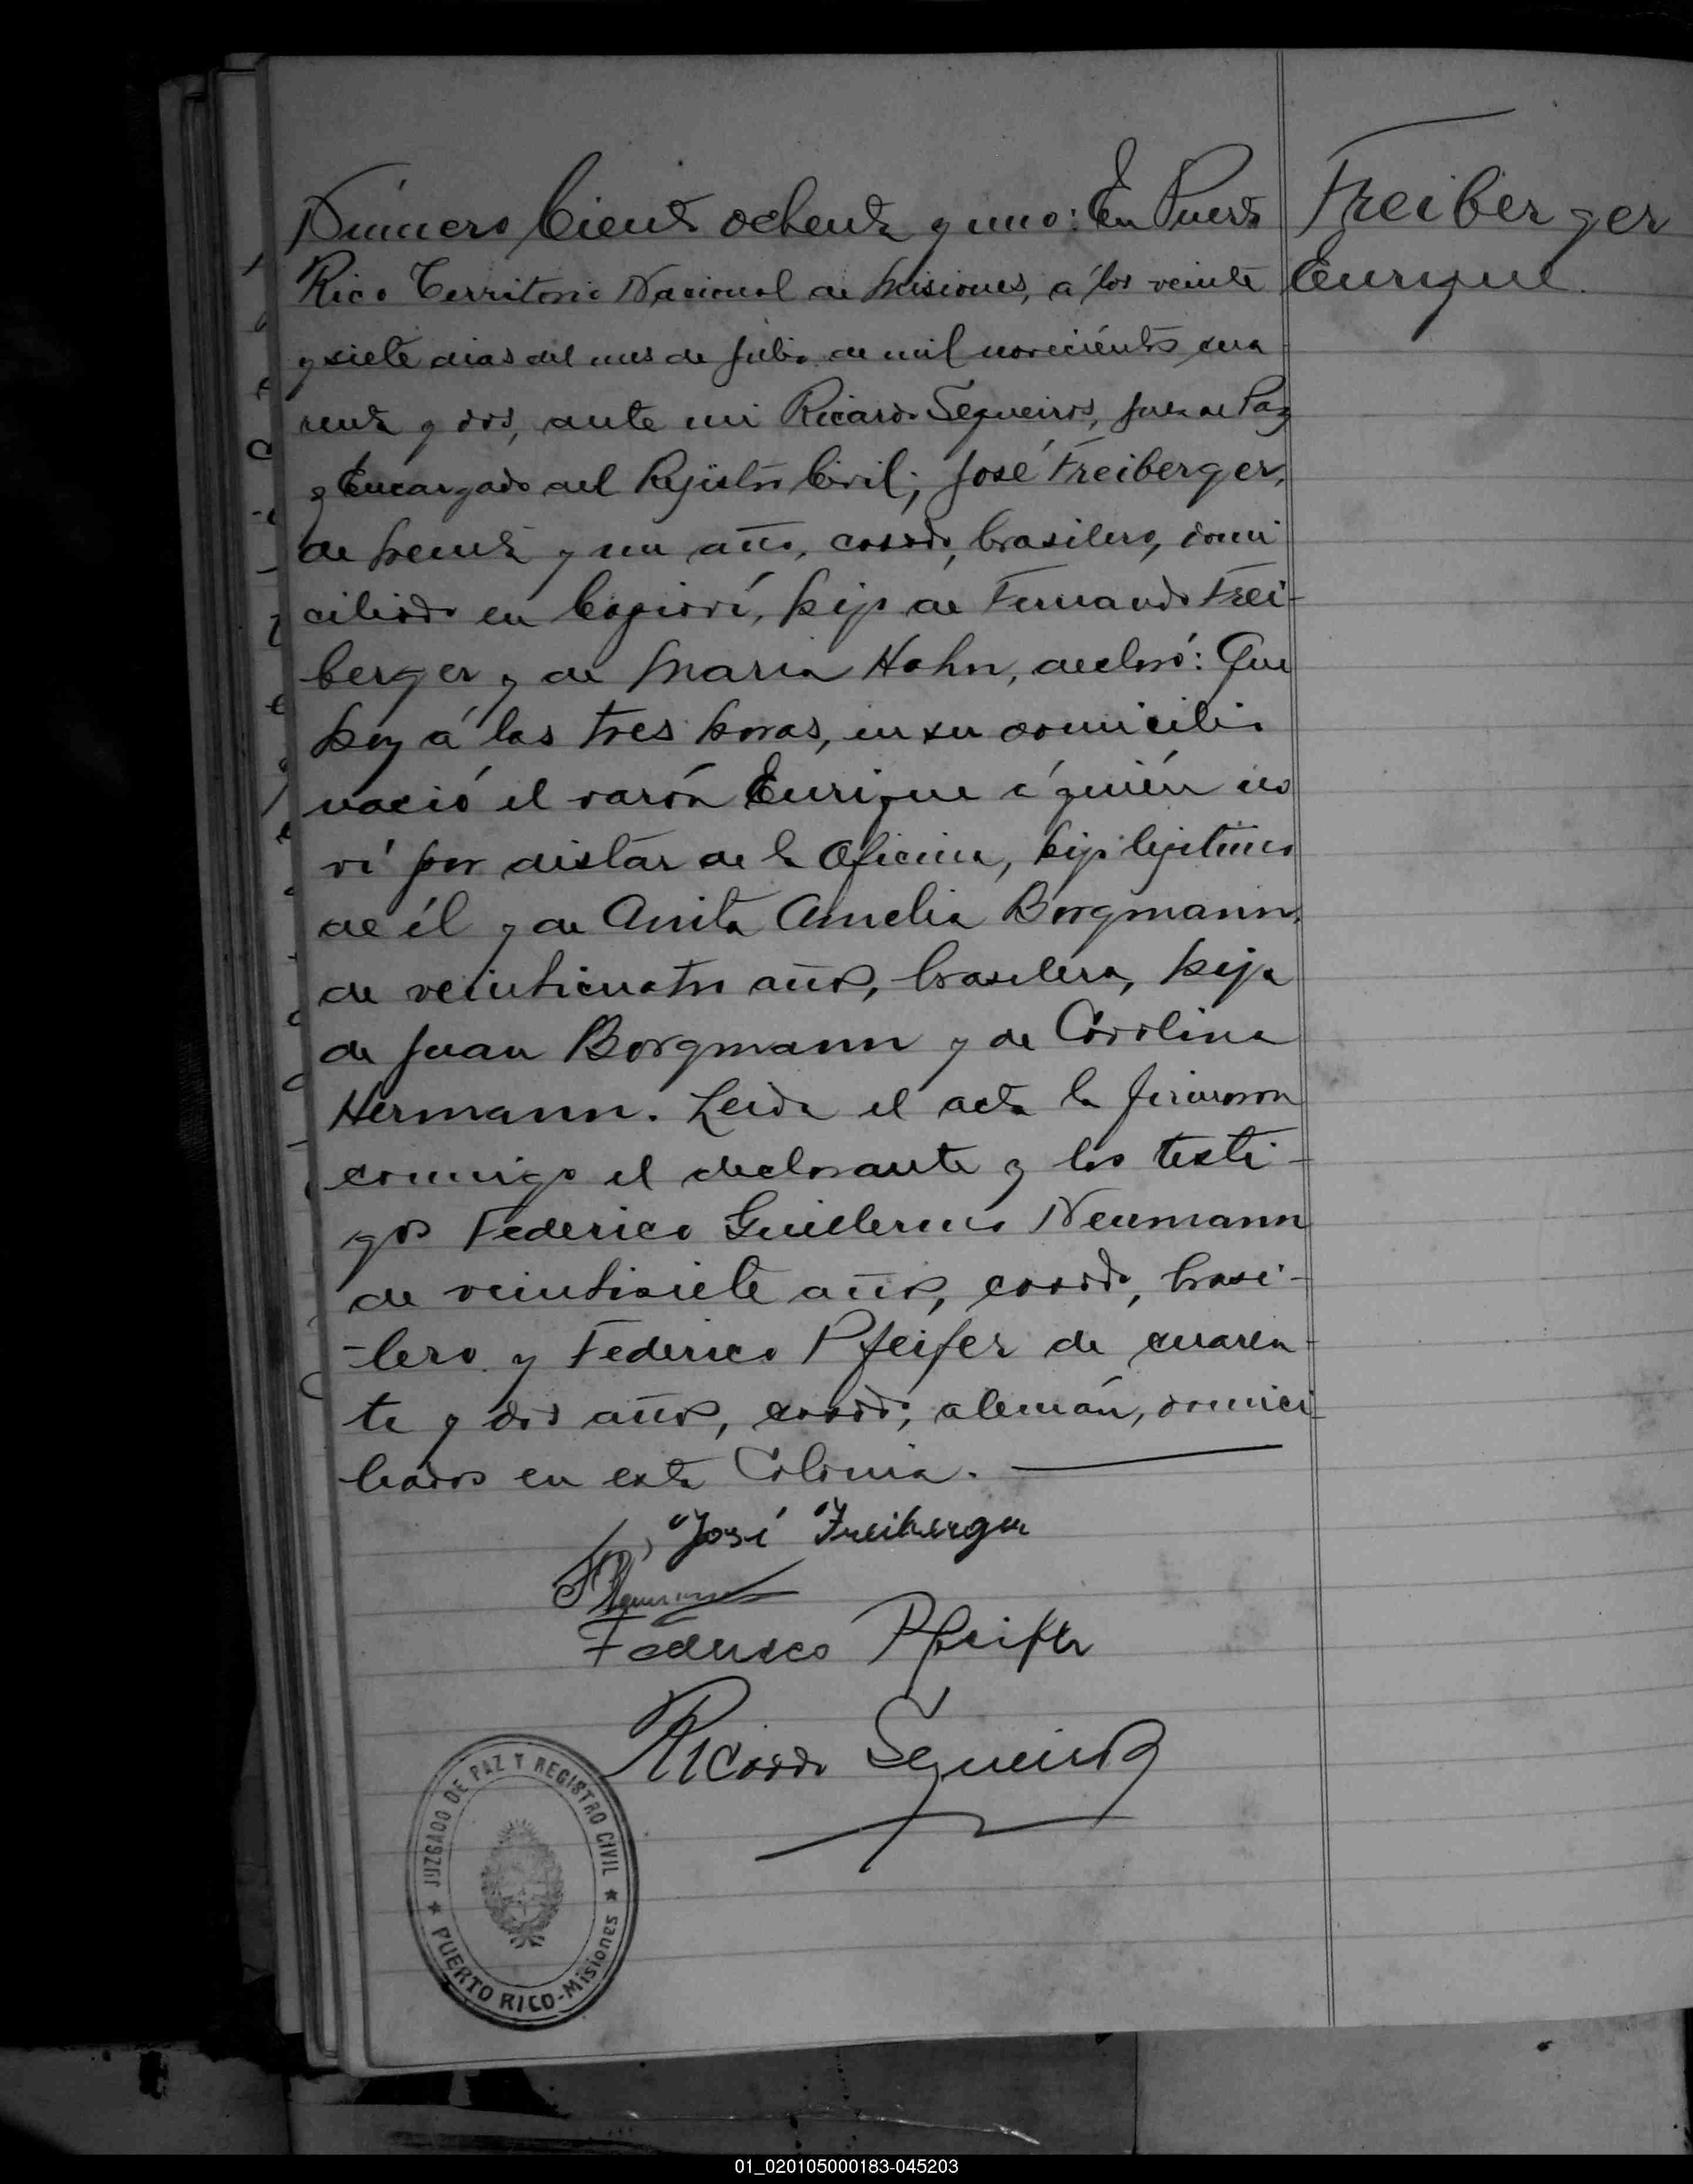 Número Ciento ochenta y uno: En Puerto
Freiberger
Enrique.
Rico Territorio Nacional de Misiones, á los veinte
y siete dias del mes de Julio de mil novecientos cua
renta y dos, ante mi Ricardo Sequeiros, Juez de Paz
y Encargado del Rejistro Civil; José Freiberger,
de treinta y un año, casado, brasilero, domi
ciliado en Capioví, hijo de Fernando Frei-
berger y de Maria Hahn, declaró: Que
hoy á las tres horas, en su domicilio
nació el varón Enrique á quién no
ví por distar de la Oficina, hijo lejitimo
de él y de Anita Amelia Borgmann,
de veinticuatro años, brasilera, hija
de Juan Borgmann y de Carolina
Hermann. Leida el acta la firmaron
conmigo el declarante y los testi-
gos Federico Guillermo Neumann
de veintisiete años, casado, brasi-
-lero y Federico Pfeifer de cuaren-
ta y dos años, casado, alemán, domici
liados en esta Colonia.
José Freiberger
Federico Pfeifer
Ricardo Sequeiros
JUZGADO DE PAZ Y REGISTRO CIVIL
★ PUERTO RICO-Misiones ★
01_020105000183-045203